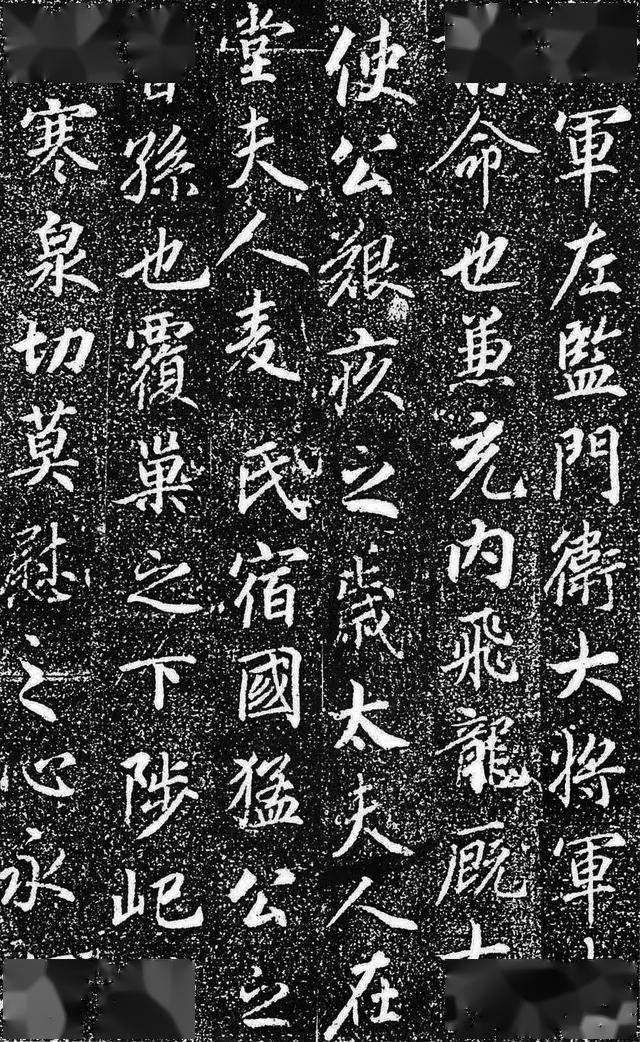 軍左監門衛大将軍
命也兼充内飛龍厩
使公艱疚之歲太夫人在
堂夫人麦氏宿國猛公之
孫也覆巢之下陟屺
寒泉切莫慰之心永